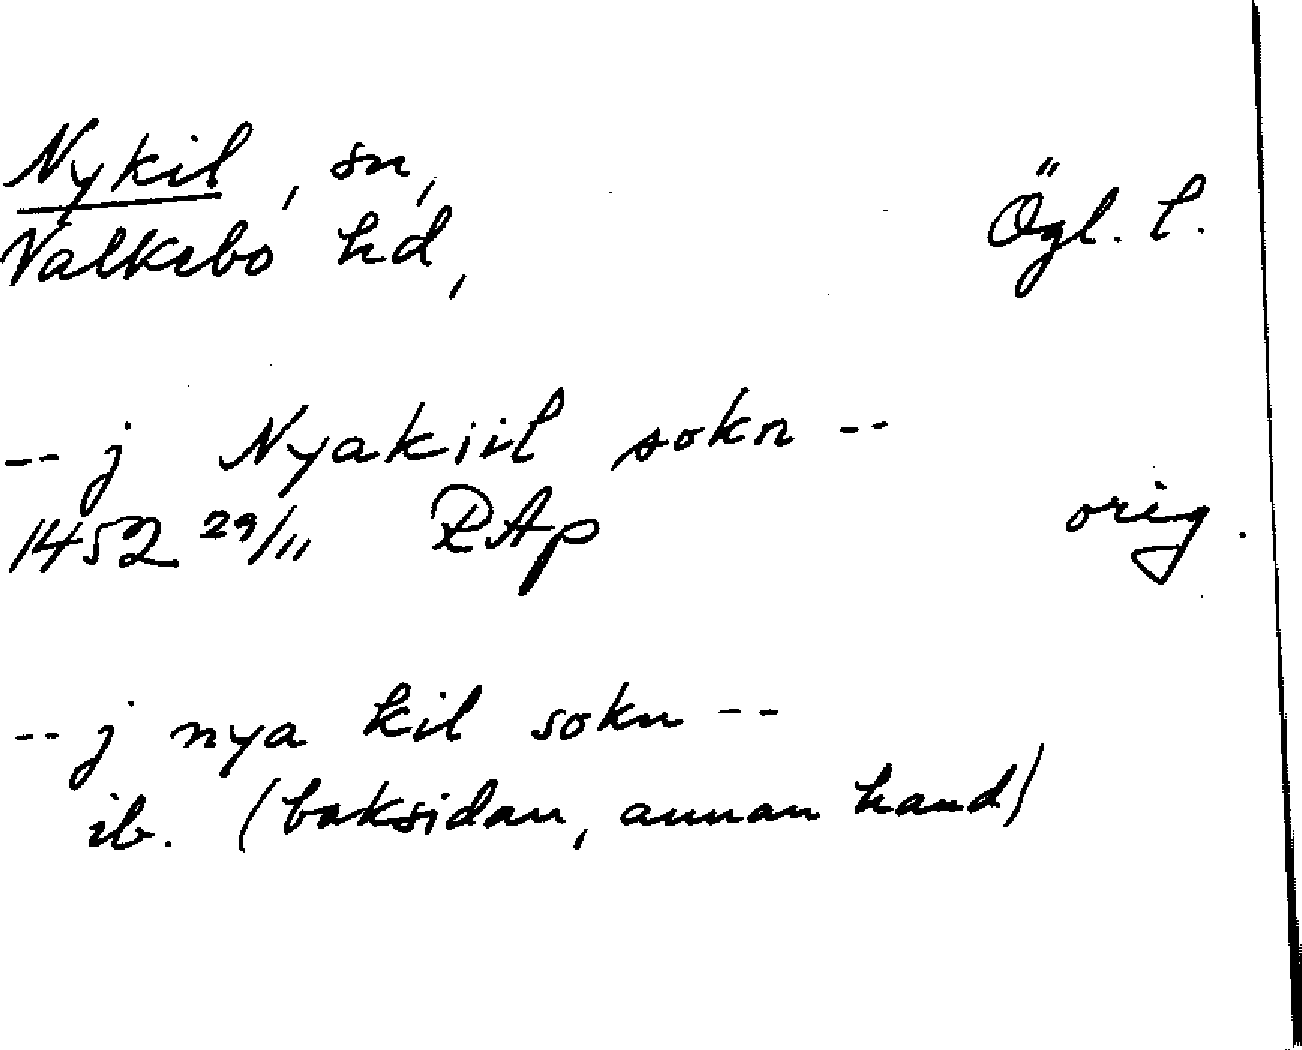 Nykil, sn,
Valkebo hd, Ögl. l.
-- j Nyakiil sokn --
1452 29/11 RAp orig.
-- j nya kil sokn --
ib. (baksidan, annan hand)